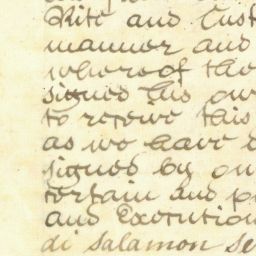 Rite and Cust
manner and
whereof the
signed this our
to receive this
as we have
signed by ou
certain and p
and Execution
di Salamon Se